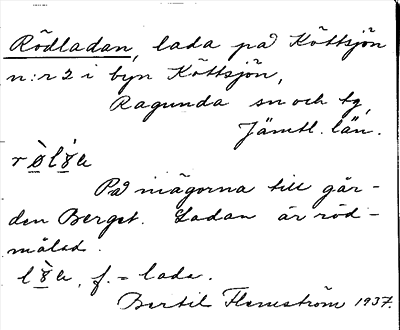 Rödladan, lada på Köttsjön
n:r 2 i byn Köttsjön,
Ragunda sn och tg,
Jämtl. län.
På mägorna till går-
den Berget. Ladan är röd-
målad.
f. = lada.
Bertil Flemström 1937.